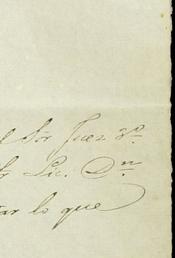 Sór Juez 3º
Lic. Dn
lo que